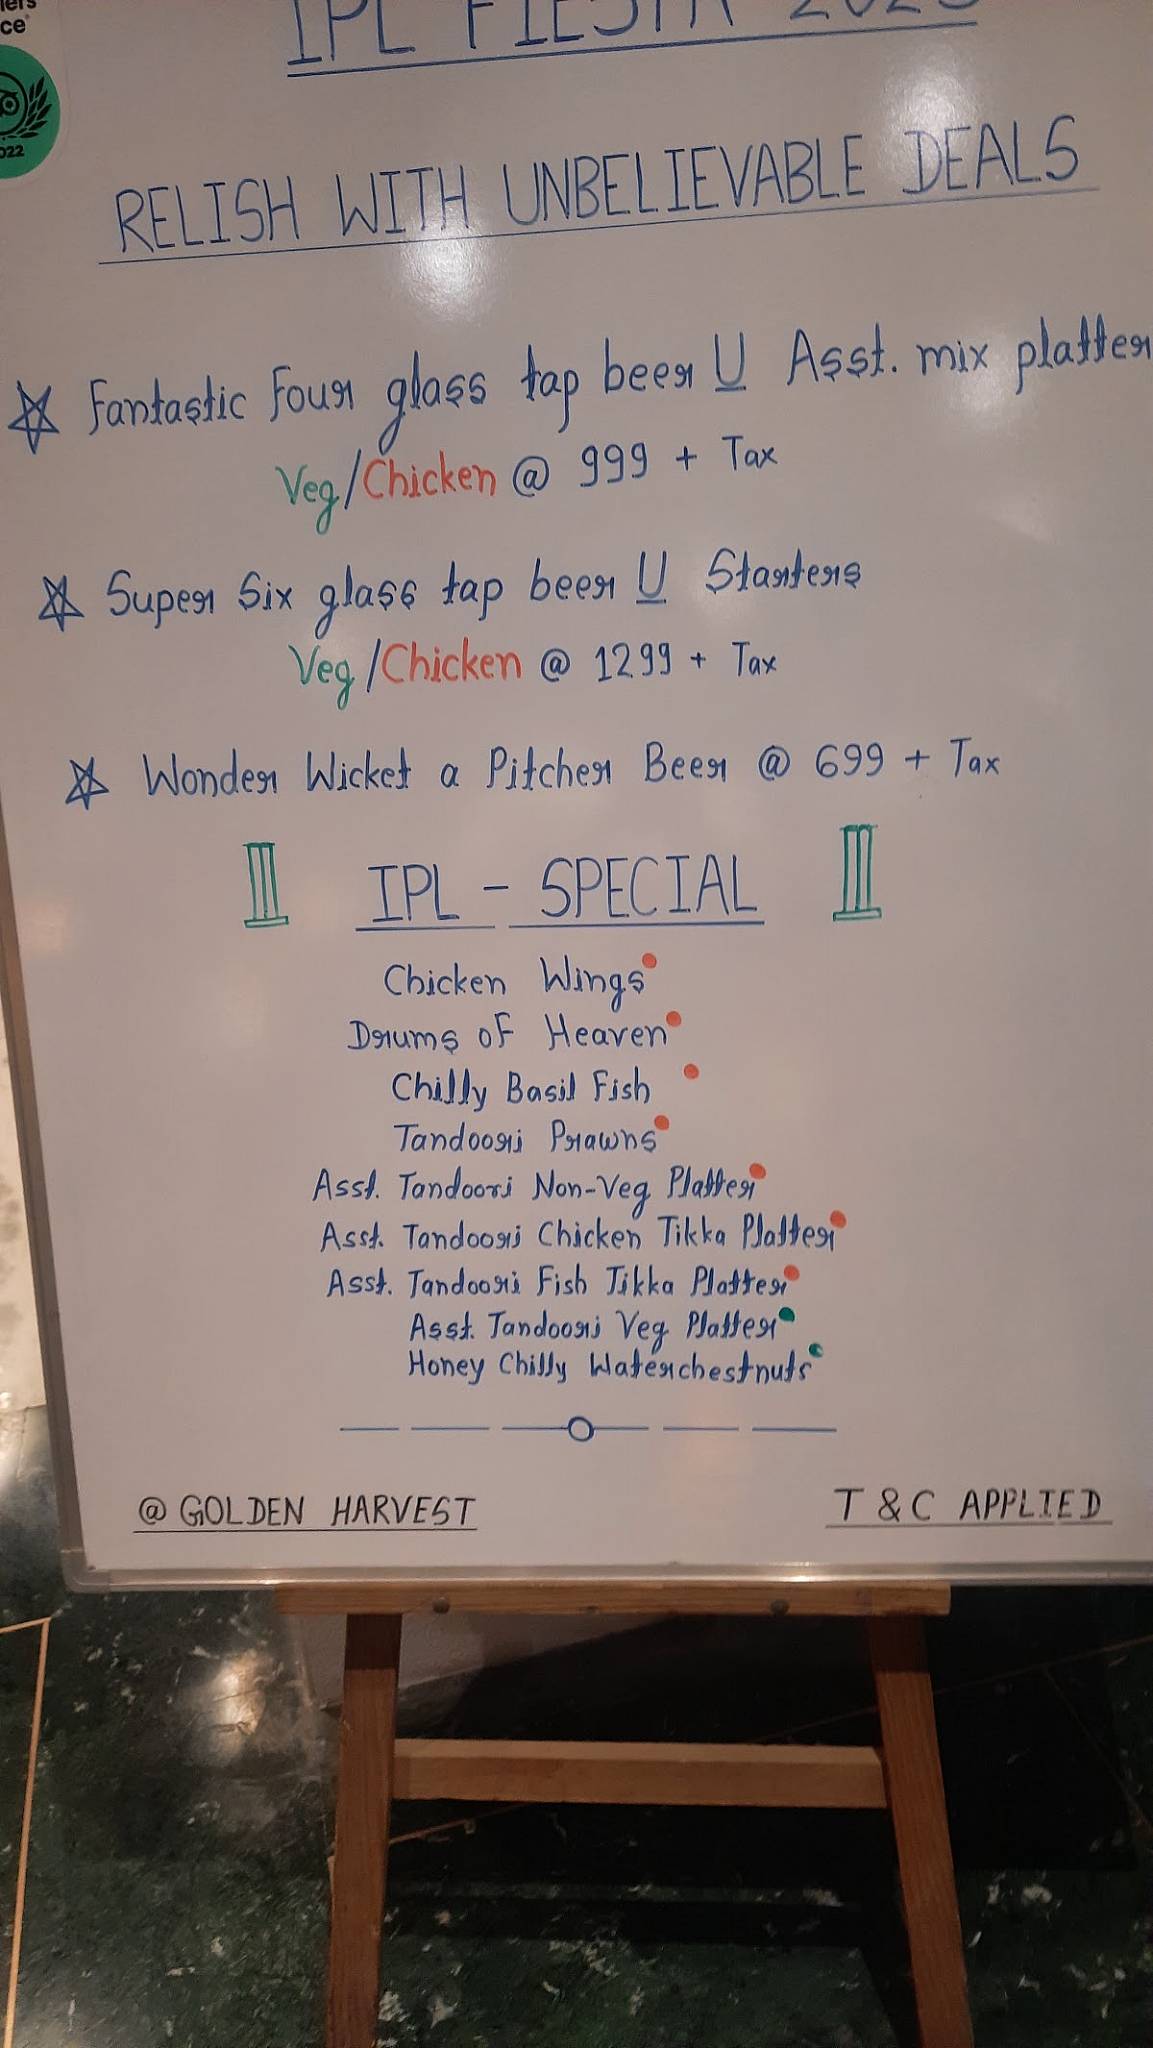 ce
2022
IPL FIESTA 2023
RELISH WITH UNBELIEVABLE DEALS
Fantastic Four glass tap beer U Asst. mix platter
Veg/Chicken @ 999 + Tax
Super Six glass tap beer U Starters
Veg/Chicken @ 1299 + Tax
Wonder Wicket a Pitcher Beer @ 699 + Tax
IPL - SPECIAL
Chicken Wings
Drums of Heaven
Chilly Basil Fish
Tandoori Prawns
Asst. Tandoori Non-Veg Platter
Asst. Tandoori Chicken Tikka Platter
Asst. Tandoori Fish Tikka Platter
Asst. Tandoori Veg Platter
Honey Chilly Waterchestnuts
@ GOLDEN HARVEST
T & C APPLIED